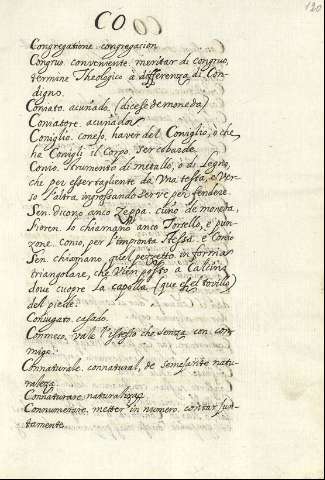 CO
120
Congregatione. congregacion
Congruo. conveniente. meritar di congruo,
termine Theologico à differenza di Con-
digno.
Coniato. acuñado (dicese de moneda)
Coniatore. acuñador
Coniglio. conejo, haver del Coniglio, o che
ha Conigli il Corpo. ser cobarde.
Conio. strumento di metallo, o di Legno,
che per esser tagliente da una testa, e ver-
so l'altra ingrossando serve per fendere.
Sen. dicono anco Zeppa. cuño de moneda,
fioren. lo chiamano anco Tortello, e pun-
zone. conio, per l'impronta stessa. e Conio
Sen. chiamano quel pezzetto in forma
triangolare, che vien posto à Calcina
dove cuopre la capolla (que es el tovillo)
del pielle.
Coniugato. casado.
Conmeco, vale l'istesso che senza con. con-
migo.
Connaturale. connatural, de semejante natu-
raleza.
Connaturare. naturalizar
Connumerare. metter in numero. contar jun-
tamente.